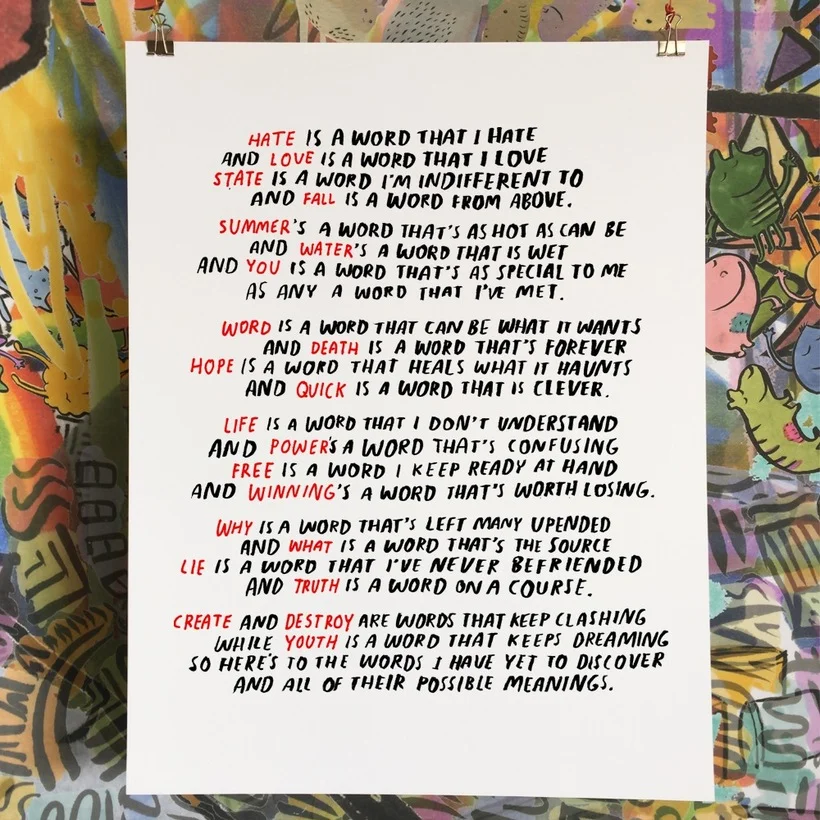 HATE IS A WORD THAT I HATE
AND LOVE IS A WORD THAT I LOVE
STATE IS A WORD I'M INDIFFERENT TO
AND FALL IS A WORD FROM ABOVE.
SUMMER'S A WORD THAT'S AS HOT AS CAN BE
AND WATER'S A WORD THAT IS WET
AND YOU IS A WORD THAT'S AS SPECIAL TO ME
AS ANY A WORD THAT I'VE MET.
WORD IS A WORD THAT CAN BE WHAT IT WANTS
AND DEATH IS A WORD THAT'S FOREVER
HOPE IS A WORD THAT HEALS WHAT IT HAUNTS
AND QUICK IS A WORD THAT IS CLEVER.
LIFE IS A WORD THAT I DON'T UNDERSTAND
AND POWER'S A WORD THAT'S CONFUSING
FREE IS A WORD I KEEP READY AT HAND
AND WINNING'S A WORD THAT'S WORTH LOSING.
WHY IS A WORD THAT'S LEFT MANY UPENDED
AND WHAT IS A WORD THAT'S THE SOURCE
LIE IS A WORD THAT I'VE NEVER BEFRIENDED
AND TRUTH IS A WORD ON A COURSE.
CREATE AND DESTROY ARE WORDS THAT KEEP CLASHING
WHILE YOUTH IS A WORD THAT KEEPS DREAMING
SO HERE'S TO THE WORDS I HAVE YET TO DISCOVER
AND ALL OF THEIR POSSIBLE MEANINGS.